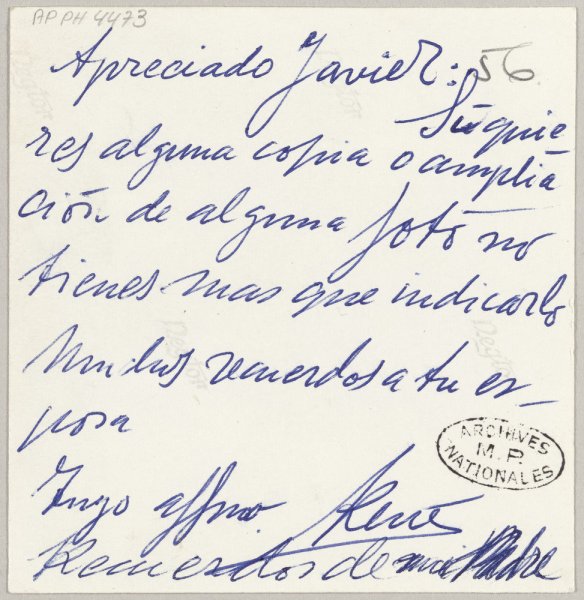 AP PH 4473
Apreciado Javier: 56
Si quie
res alguna copia o amplia
ción de alguna foto no
tienes mas que indicarlo
Muchos recuerdos a tu es-
posa
affmo René
Recuerdos de mi Padre
ARCHIVES
M. P.
NATIONALES
Degtor
Degtor